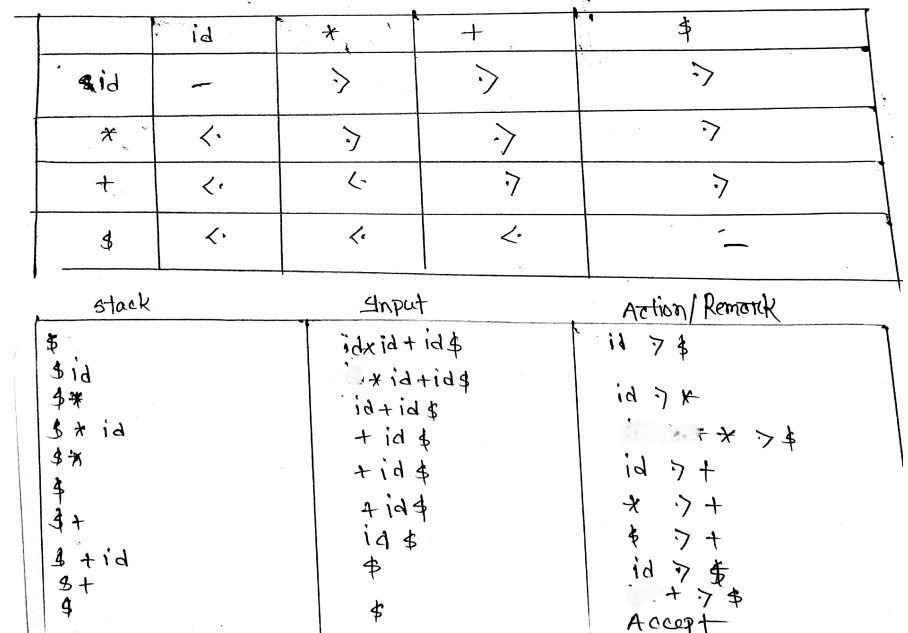 id * + $
id – ·> ·> ·>
* <· ·> ·> ·>
+ <· <· ·> ·>
$ <· <· <· –
Stack Input Action/Remark
$ id×id+id$ id ·> $
$id * id+id$ id ·> *
$* id+id$ * ·> $
$* id + id $ id ·> +
$* + id $ * ·> +
$ + id $ $ ·> +
$+ id $ id ·> $
$+id $ + ·> $
$+
$ $ Accept